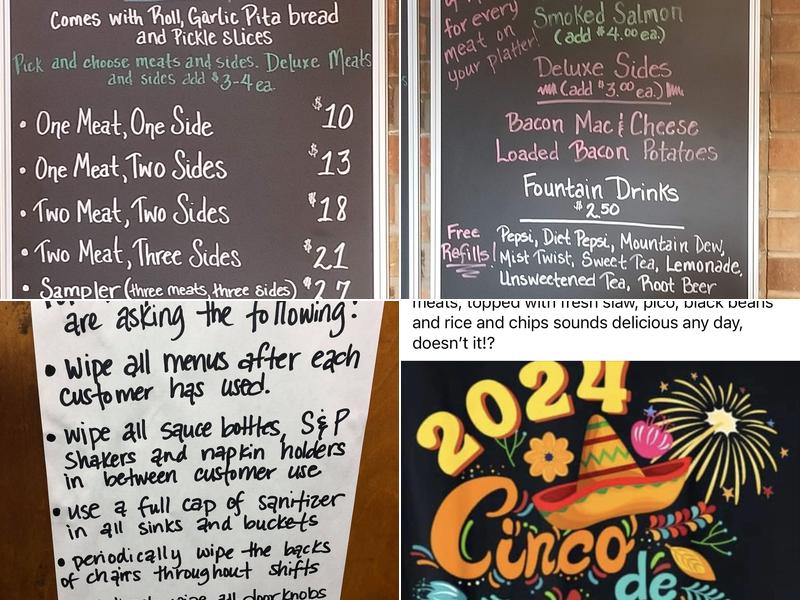 Comes with Roll, Garlic Pita bread
and Pickle slices
Pick and choose meats and sides. Deluxe Meats
and sides add $3-4 ea.
• One Meat, One Side $10
• One Meat, Two Sides $13
• Two Meat, Two Sides $18
• Two Meat, Three Sides $21
• Sampler (three meats, three sides) $27
for every
meat on
your platter!
Smoked Salmon
(add $4.00 ea.)
Deluxe Sides
(add $3.00 ea.)
Bacon Mac & Cheese
Loaded Bacon Potatoes
Fountain Drinks
$2.50
Free
Refills!
Pepsi, Diet Pepsi, Mountain Dew,
Mist Twist, Sweet Tea, Lemonade,
Unsweetened Tea, Root Beer
are asking the following:
• Wipe all menus after each
customer has used.
• wipe all sauce bottles, S&P
Shakers and napkin holders
in between customer use
• use a full cap of sanitizer
in all sinks and buckets
• periodically wipe the backs
of chairs throughout shifts
wipe all doorknobs
meats, topped with fresh slaw, pico, black beans
and rice and chips sounds delicious any day,
doesn't it!?
2024
Cinco
de